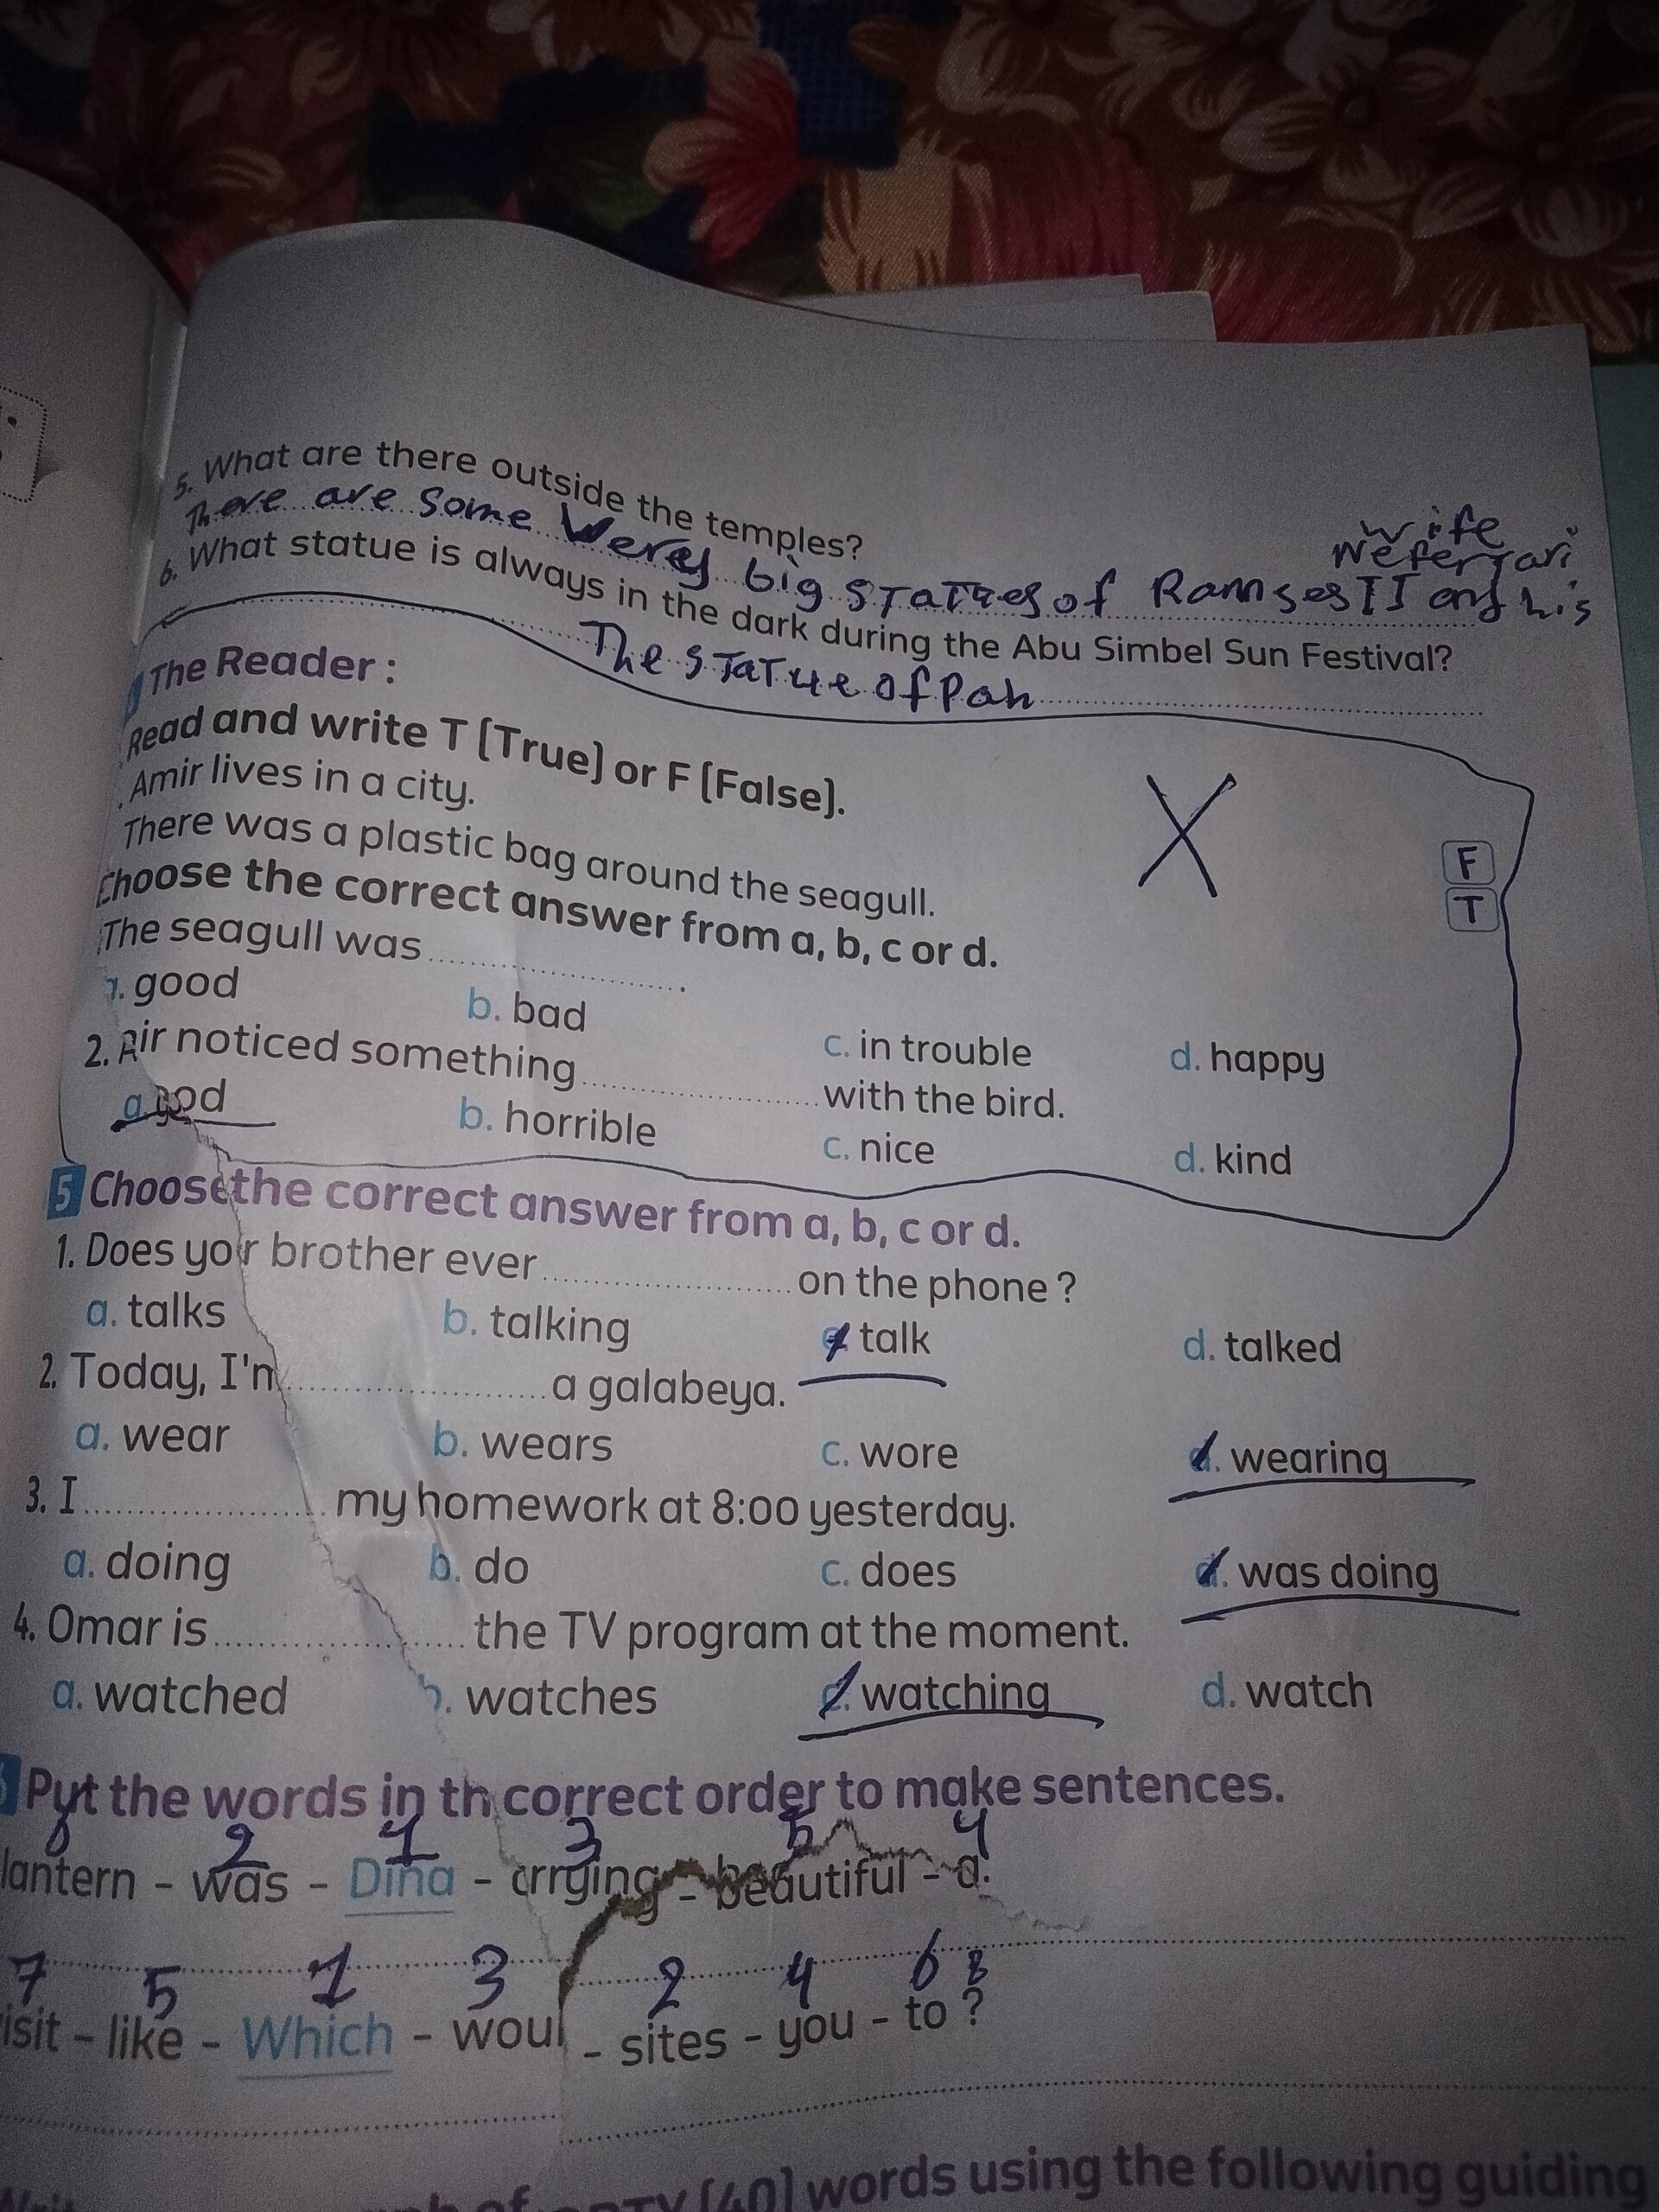 5. What are there outside the temples?
There are some Weres big statues of Ramses II and his
wife
Nefertari
6. What statue is always in the dark during the Abu Simbel Sun Festival?
The statue of Pah
The Reader :
Read and write T (True) or F (False).
Amir lives in a city.
F
There was a plastic bag around the seagull.
T
Choose the correct answer from a, b, c or d.
The seagull was
. good b. bad c. in trouble d. happy
2. Air noticed something with the bird.
a. good b. horrible c. nice d. kind
5 Choose the correct answer from a, b, c or d.
1. Does your brother ever on the phone ?
a. talks b. talking c. talk d. talked
2. Today, I'm a galabeya.
a. wear b. wears c. wore d. wearing
3. I my homework at 8:00 yesterday.
a. doing b. do c. does d. was doing
4. Omar is the TV program at the moment.
a. watched b. watches c. watching d. watch
Put the words in th correct order to make sentences.
6 2 1 3 5 4
lantern - was - Dina - crrying - beautiful - a.
7 5 1 3 2 4 6 8
isit - like - Which - woul - sites - you - to ?
(40) words using the following guiding